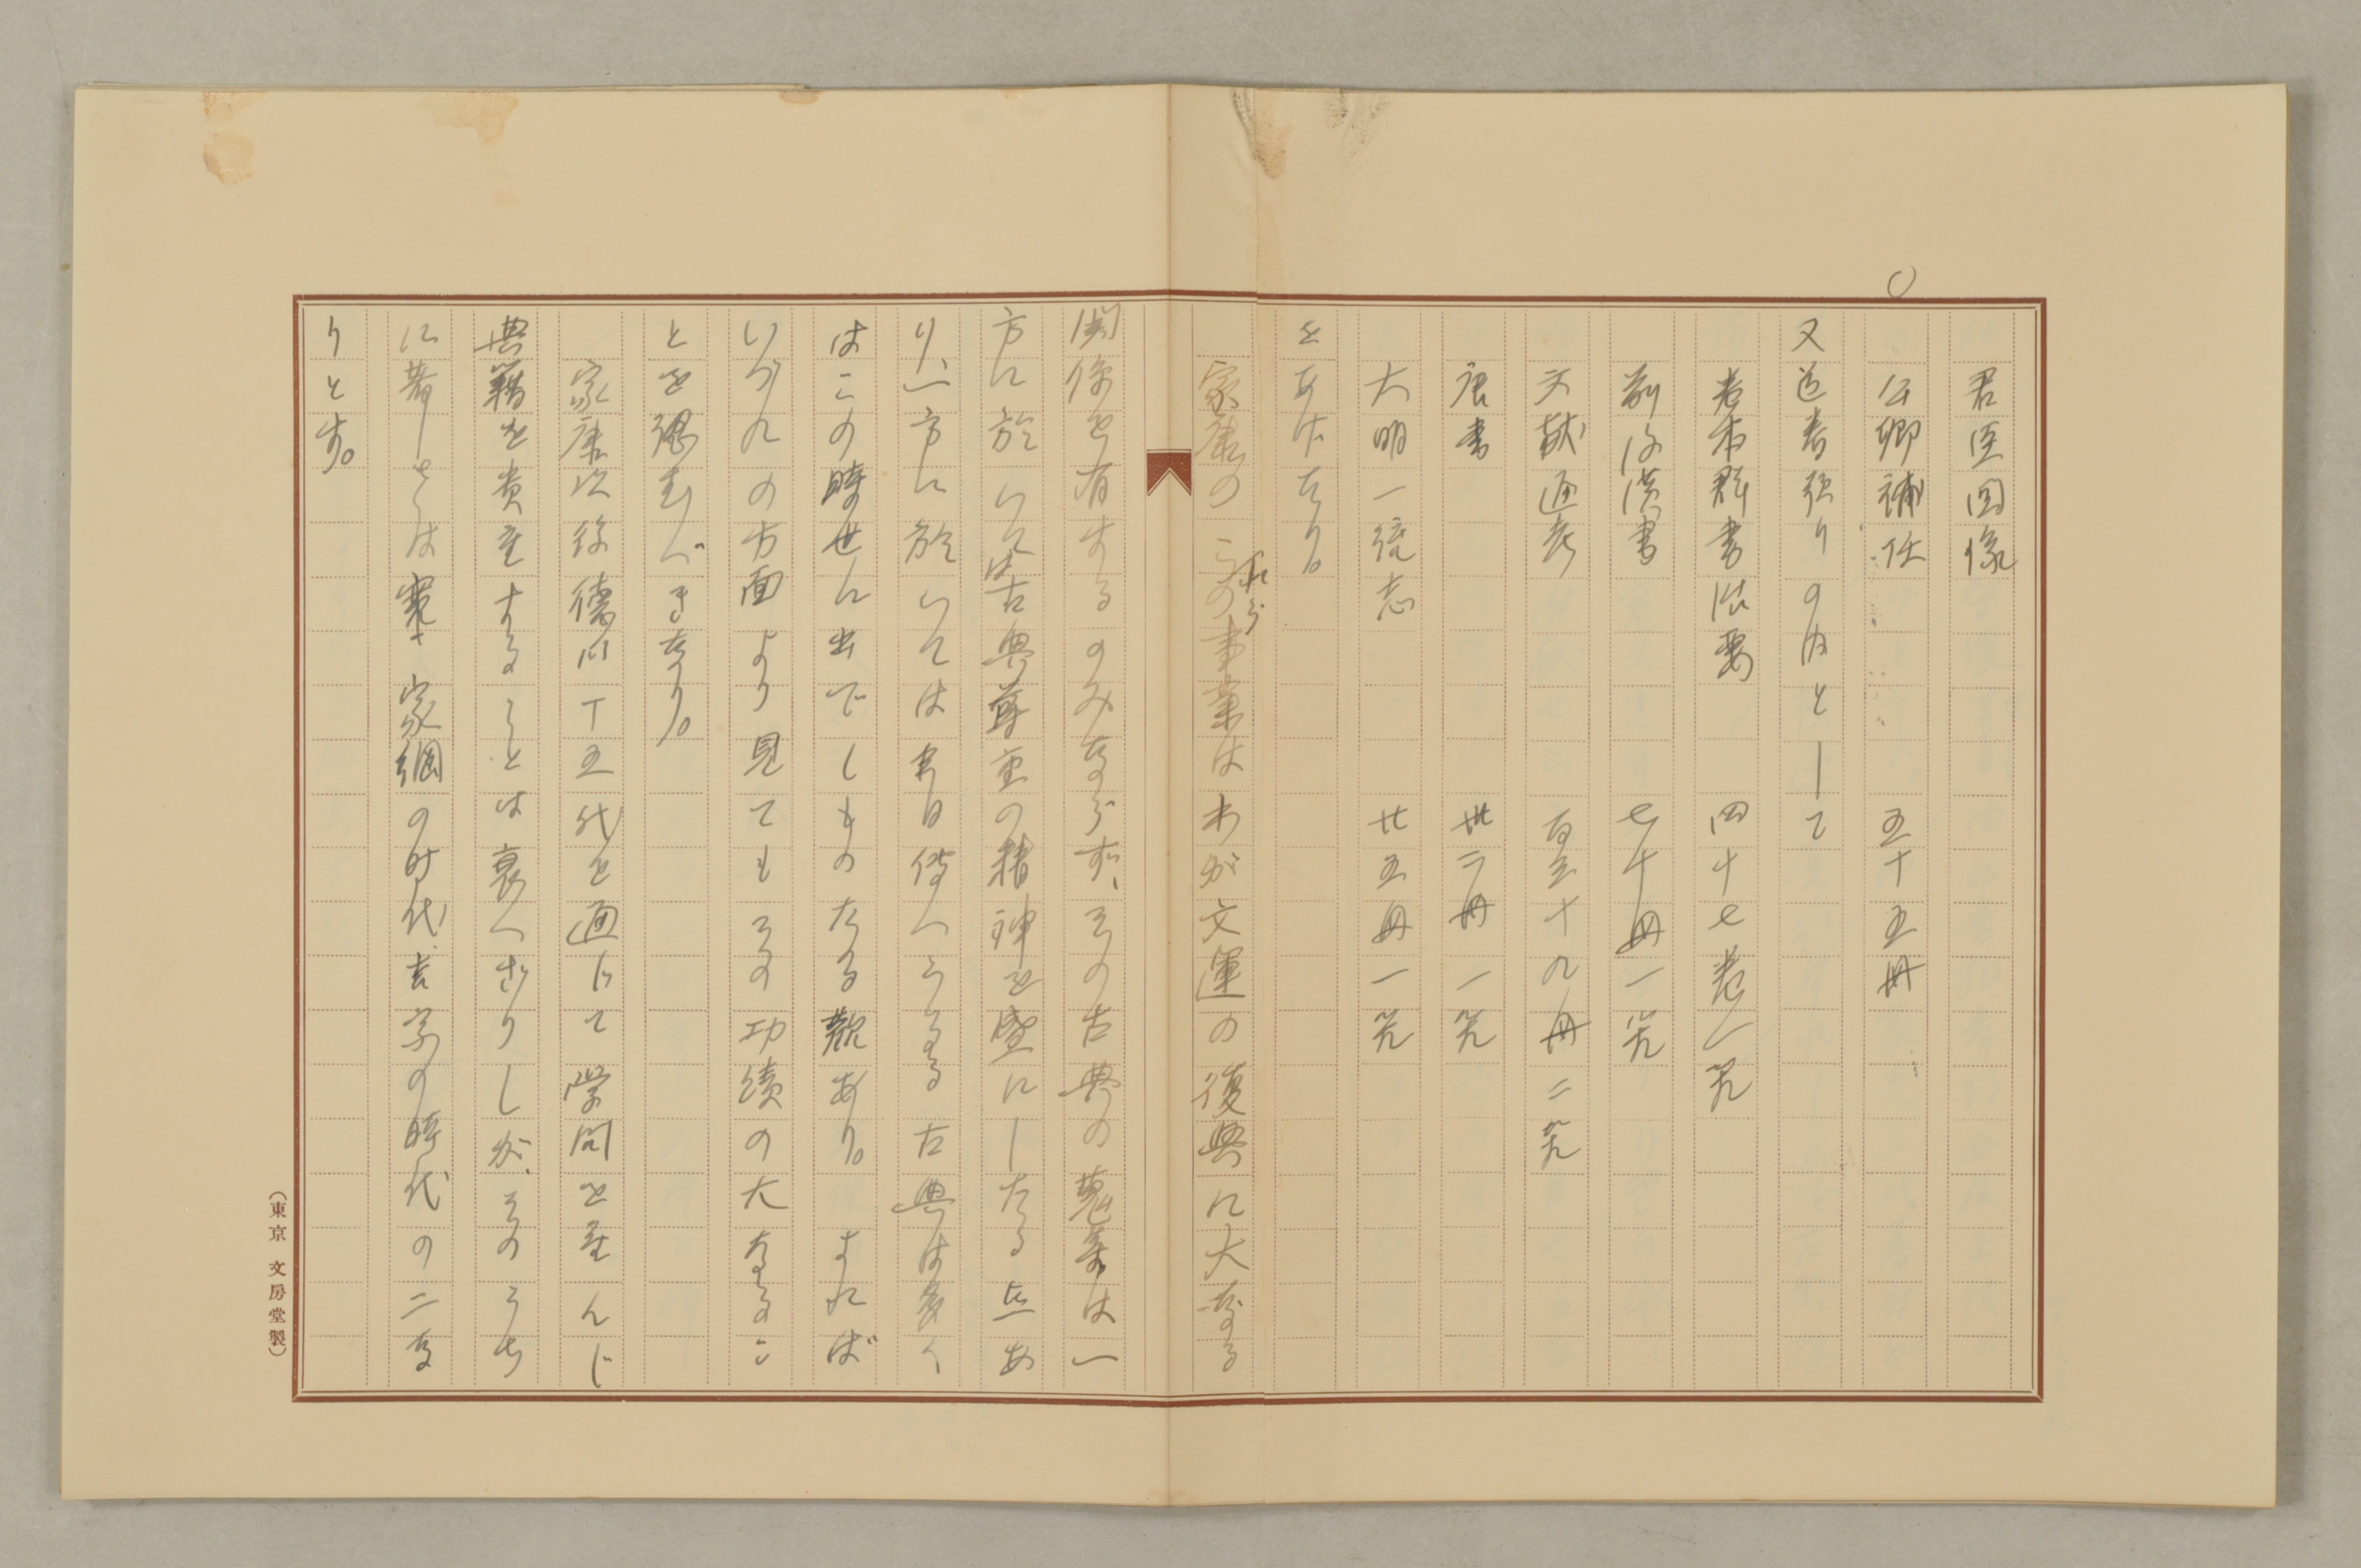 君臣図像
公卿補任　五十五冊
又道春預りの内として
春本群書治要　四十七巻一箱
前後漢書　七十冊一箱
文献通考　百五十九冊二箱
唐書　卅二冊一箱
大明一統志　廿五冊一箱
をあげたり。
家康のこれらの事業はわが文運の復興に大なる
関係を有するのみならず、その古典の蒐集は一
方に於いては古典尊重の精神を盛にしたる点あ
り、一方に於いては今日伝へらるる古典は多く
はこの時せんに出でしものたる観あり。されば
いづれの方面より見てもその功績の大なるこ
とを認むべきなり。
家康以後徳川十五代を通じて学問を重んじ
典籍を貴重することは衰へざりしが、そのうち
に著しきは寛文、家綱の時代、吉宗の時代の二な
りとす。
（東京 文房堂製）